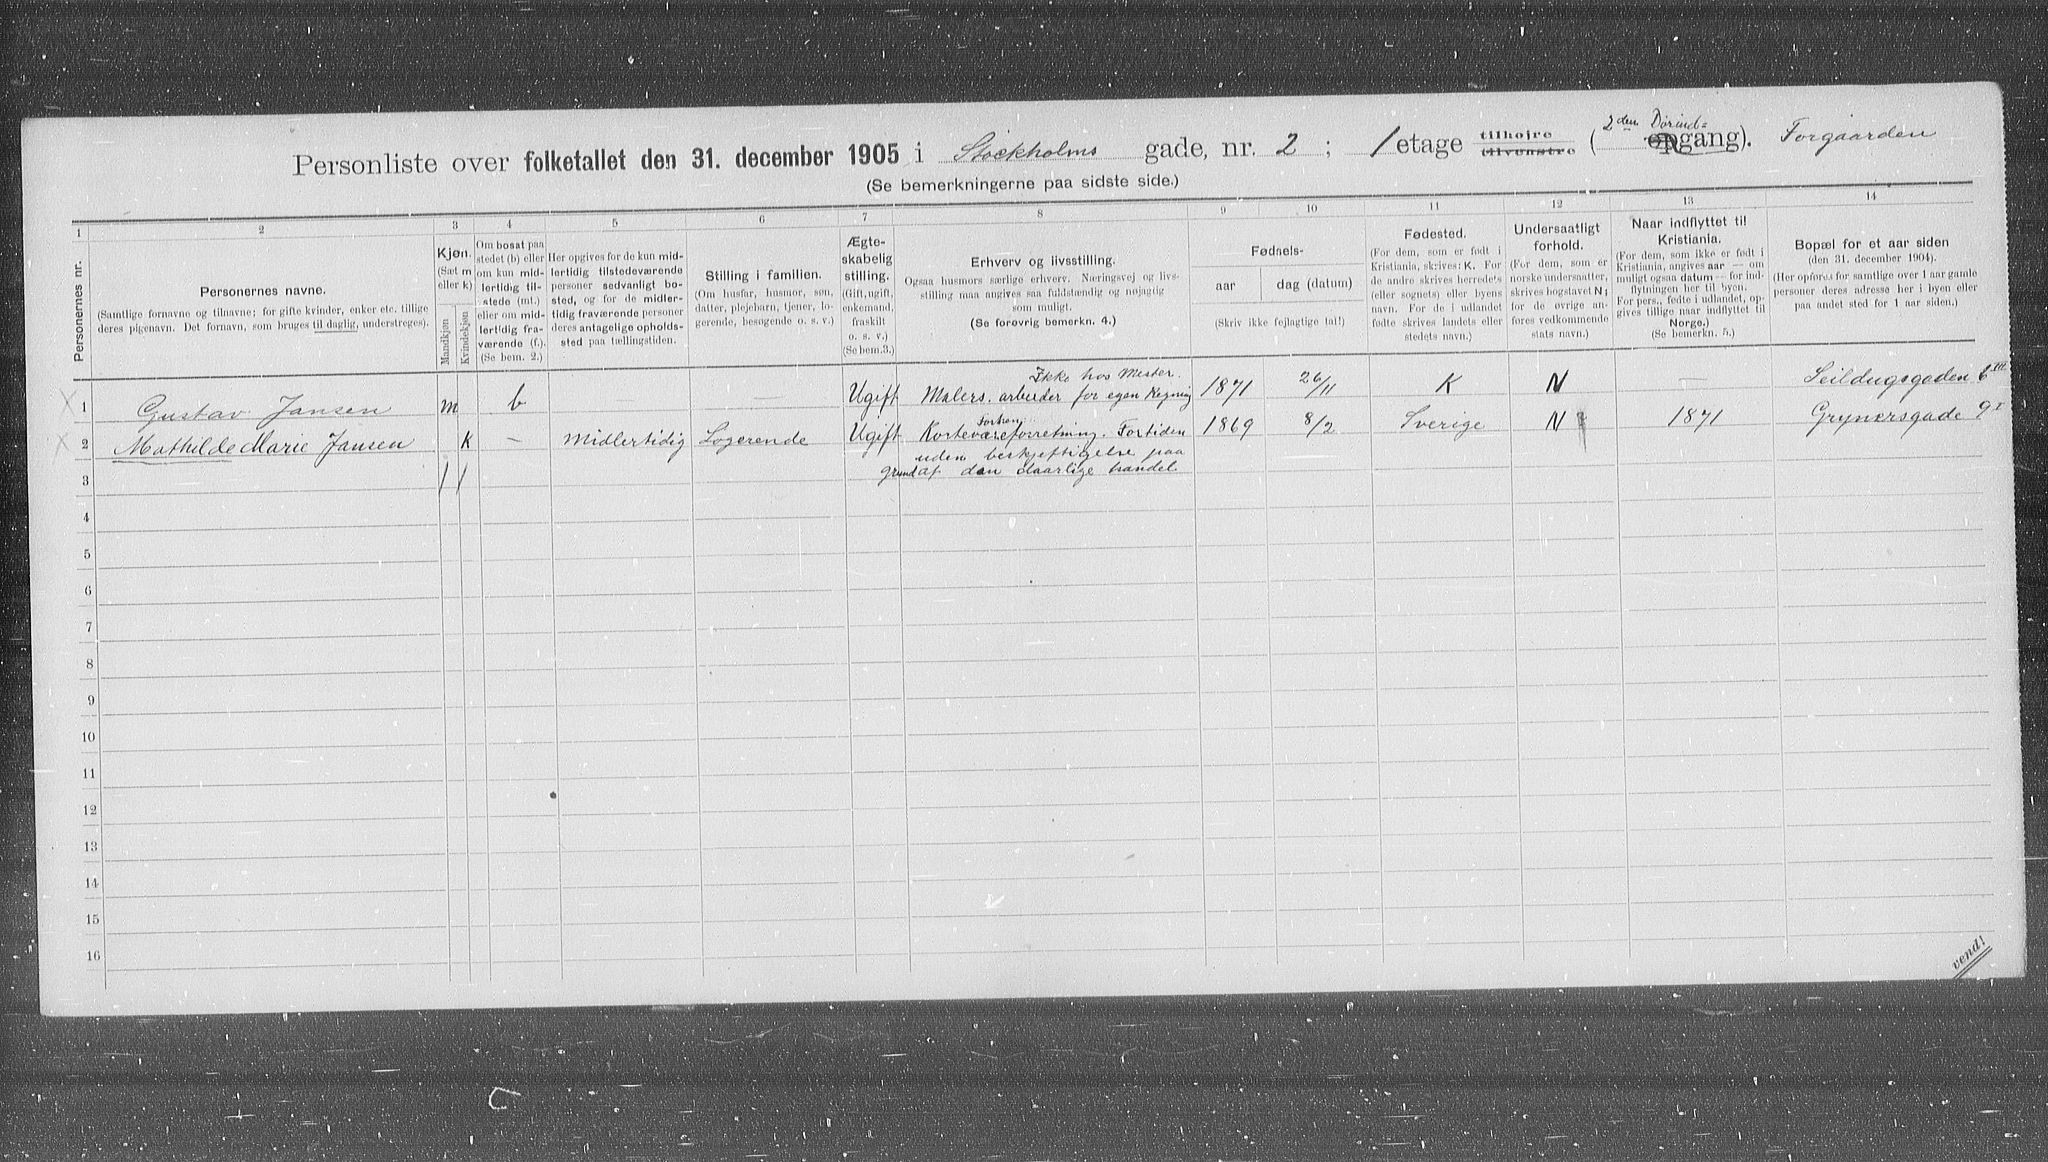 Personliste over folketallet den 31. december 1905 i Stockholms gade, nr. 2 ; 1 etage tilhøjre tilvenstre ( 2den Dørind= opgang). Forgaarden
(Se bemerkningerne paa sidste side.)
1 2 3 4 5 6 7 8 9 10 11 12 13 14
Personernes nr.
Personernes navne.
(Samtlige fornavne og tilnavne; for gifte kvinder, enker etc. tillige
deres pigenavn. Det fornavn, som bruges til daglig, understreges).
Kjøn.
(Sæt m
eller k)
Mandkjøn
Kvindekjøn
Om bosat paa
stedet (b) eller
om kun mid-
lertidig til-
stede (mt.)
eller om mid-
lertidig fra-
værende (f.).
(Se bem. 2.)
Her opgives for de kun mid-
lertidig tilstedeværende
personer sedvanligt bo-
sted, og for de midler-
tidig fraværende personer
deres antagelige opholds-
sted paa tællingstiden.
Stilling i familien.
(Om husfar, husmor, søn,
datter, plejebarn, tjener, lo-
gerende, besøgende o. s. v.)
Ægte-
skabelig
stilling.
(Gift, ugift,
enkemand,
fraskilt
o. s. v.)
(Se bem.3.)
Erhverv og livsstilling.
Ogsaa husmors særlige erhverv. Næringsvej og livs-
stilling maa angives saa fuldstændig og nøjagtig
som muligt.
(Se forøvrig bemerkn. 4.)
Fødnels-
aar dag (datum)
(Skriv ikke fejlagtige tal!)
Fødested.
(For dem, som er født i
Kristiania, skrives: K. For
de andre skrives herredets
(eller sognets) eller byens
navn. For de i udlandet
fødte skrives landets eller
stedets navn.)
Undersaatligt
forhold.
(For dem, som er
norske undersaatter,
skrives bogstavet N;
for de øvrige an-
føres vedkommende
stats navn.)
Naar indflyttet til
Kristiania.
(For dem, som ikke er født i
Kristiania, angives aar — om
muligt ogsaa datum — for ind-
flytningen her til byen.
For pers., fødte i udlandet, op-
gives tillige naar indflyttet til
Norge.)
(Se bemerkn. 5.)
Bopæl for et aar siden
(den 31. december 1904).
(Her opføres for samtlige over 1 aar gamle
personer deres adresse her i byen eller
paa andet sted for 1 aar siden.)
Ikke hos Mester.
1 Gustav Jansen m b — — Ugift Malers. arbeider for egen Regning 1871 26/11 K N — Seildugsgaden 6 III
Forhen
2 Mathilde Marie Jansen K — Midlertidig Logerende Ugift Kortevareforretning. Fortiden 1869 8/2 Sverige N 1871 Grynersgade 9 I
uden beskjeftigelse paa
3 1 1 grund af den daarlige handel
4
5
6
7
8
9
10
11
12
13
14
15
16
vend!